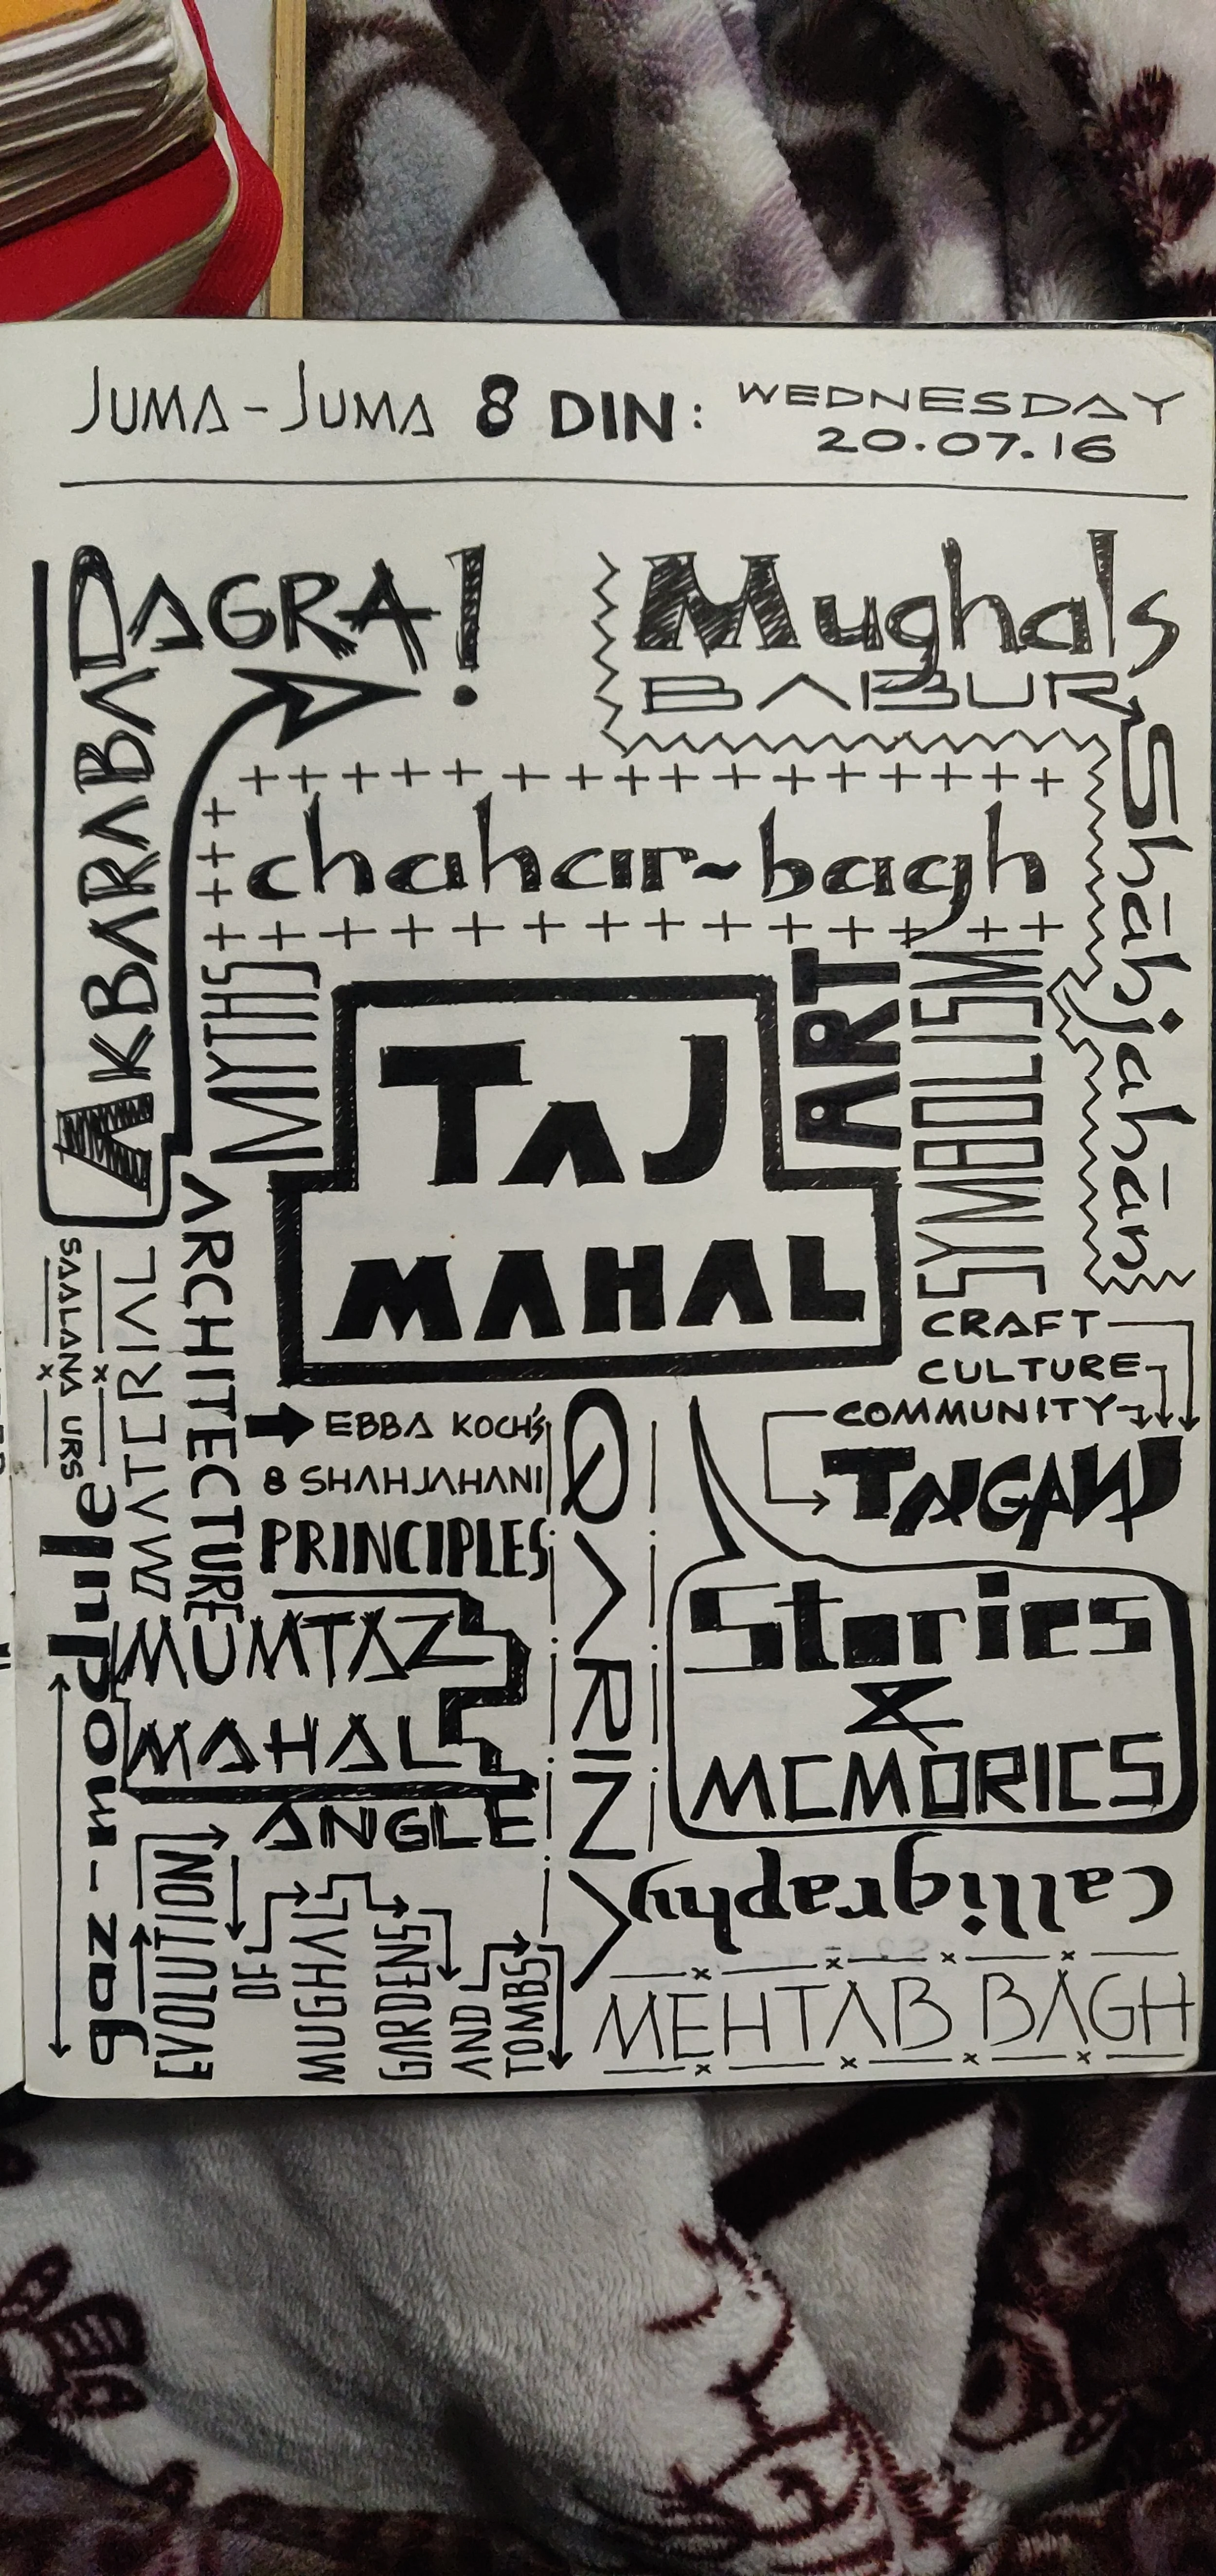 JUMA - JUMA 8 DIN: WEDNESDAY
20.07.16
AKBARABAD
AGRA!
Mughals
BABUR
Shāhjahān
chahar~bagh
MYTHS
TAJ
MAHAL
ART
SYMBOLISM
CRAFT
CULTURE
COMMUNITY
TAJGANJ
SAALANA URS
MATERIAL
ARCHITECTURE
EBBA KOCH'S
8 SHAHJAHANI
PRINCIPLES
MUMTAZ
MAHAL
ANGLE
gaz-module
EVOLUTION
OF
MUGHAL
GARDENS
AND
TOMBS
Stories
&
MEMORIES
Calligraphy
MEHTAB BAGH